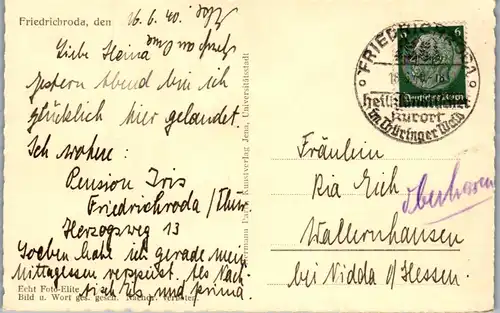 Friedrichroda, den 16.6.40.
Liebe Heina
gestern Abend bin ich
glücklich hier gelandet.
Ich wohne:
Pension Iris
Friedrichroda / Thür.
Herzogsweg 13
Soeben habe ich gerade mein
Mittagessen verspeist. Als Nach-
tisch Eis, und prima
Echt Foto-Elite
Bild u. Wort ges. gesch. Nachdr. verboten.
Kunstverlag Jena, Universitätsstadt
FRIEDRICHRODA
heilklimatischer
Kurort
im Thüringer Wald
6 6
Deutsches Reich
Fräulein
Ria Eich
Wallernhausen
bei Nidda / Hessen